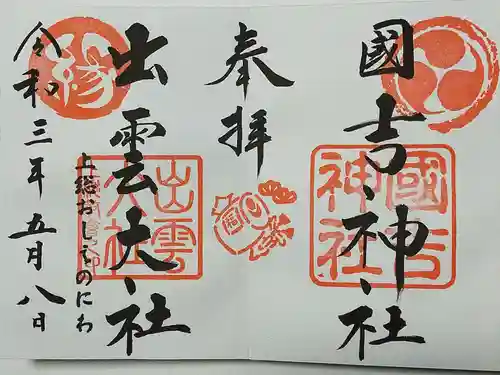 國吉神社
奉拝
出雲大社
上総おしをのにわ
令和三年五月八日
國吉
神社
出雲
大社
縁